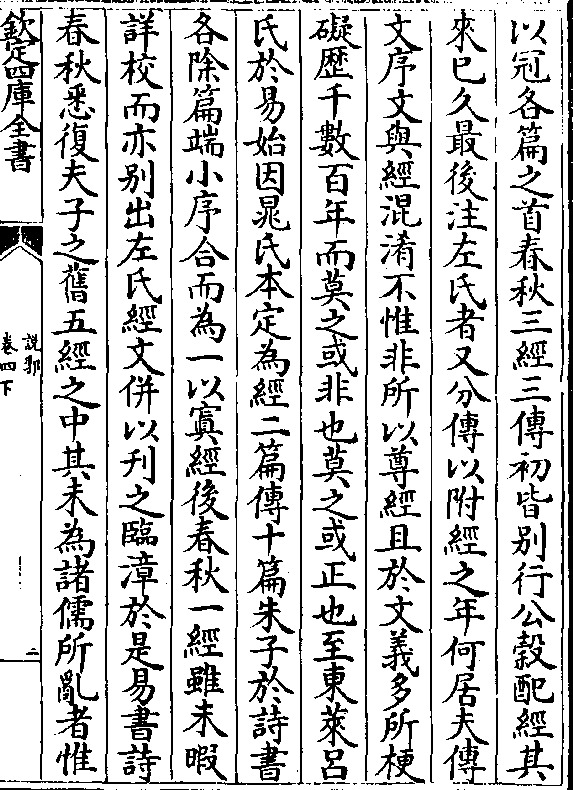 以冠各篇之首春秋三經三傳初皆別行公穀配經其
來已久最後注左氏者又分傳以附經之年何居夫傳
文序文與經混淆不惟非所以尊經且於文義多所梗
礙歴千數百年而莫之或非也莫之或正也至東萊呂
氏於易始因晁氏本定為經二篇傳十篇朱子於詩書
各除篇端小序合而為一以寘經後春秋一經雖未暇
詳校而亦別出左氏經文併以刋之臨漳於是易書詩
春秋悉復夫子之舊五經之中其未為諸儒所亂者惟
欽定四庫全書
説郛
卷四下
二